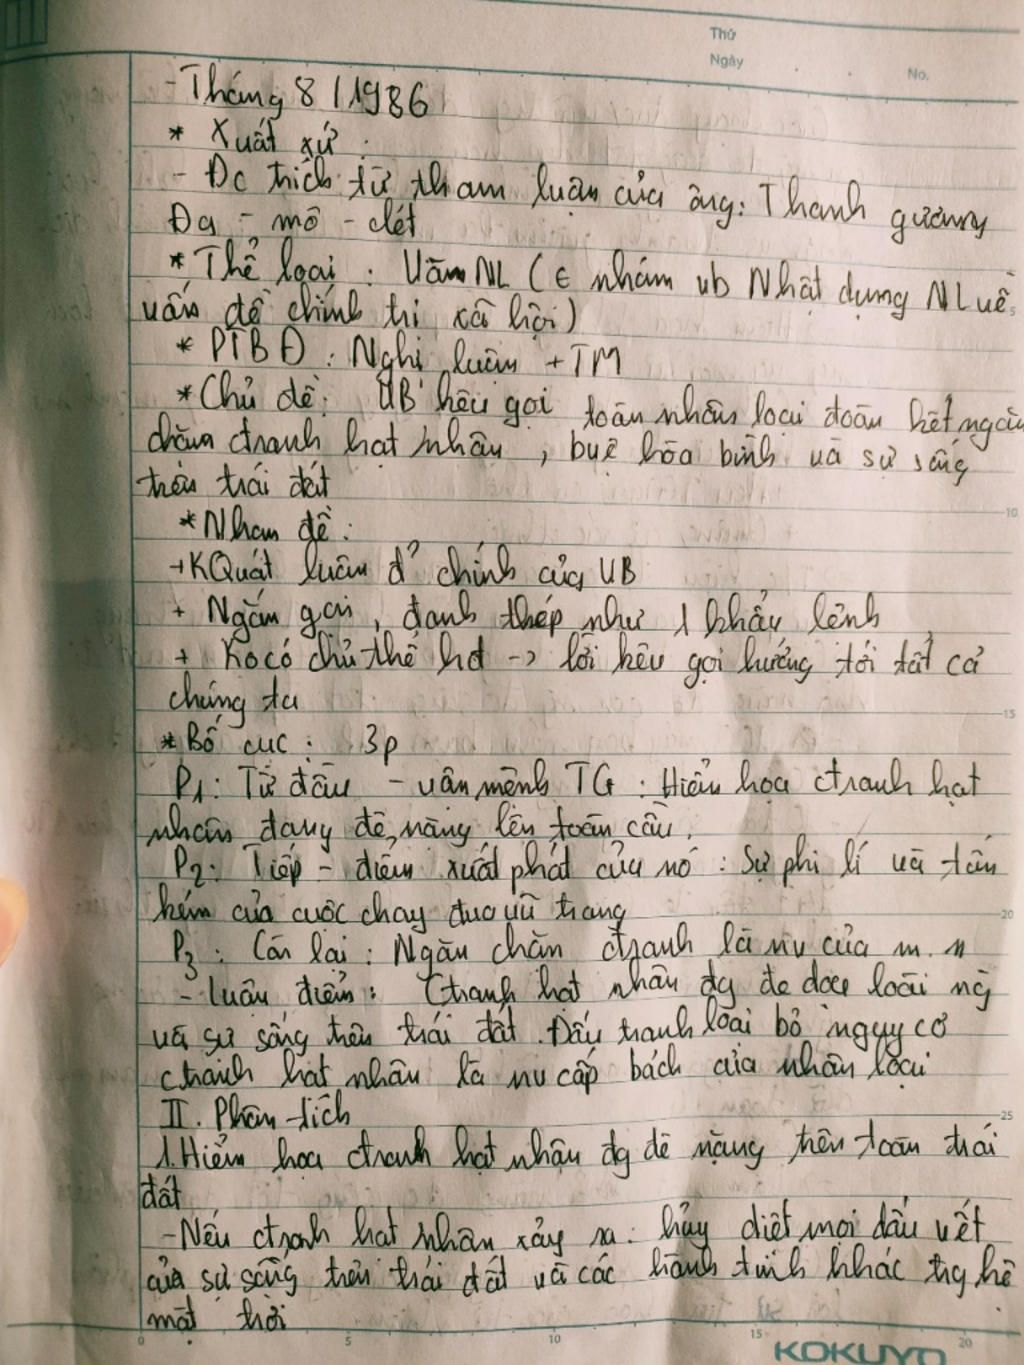 Thứ
Ngày
No.
- Tháng 8/1986
* Xuất xứ:
- Đc trích từ tham luận của ông: Thanh gương
Đa - mô - clét
* Thể loại: VănNL (∈ nhóm vb Nhật dụng NL về
vấn đề chính trị xã hội)
* PTBĐ: Nghị luận + TM
* Chủ đề: VB kêu gọi toàn nhân loại đoàn kết ngăn
chặn ctranh hạt nhân, bvệ hòa bình và sự sống
trên trái đất
* Nhan đề:
+ KQuát luận đ' chính của VB
+ Ngắn gọn, đanh thép như 1 khẩu lệnh
+ Ko có chủ thể hđ -> lời kêu gọi hướng tới tất cả
chúng ta
* Bố cục: 3p
P1: Từ đầu - vận mệnh TG: Hiểm họa ctranh hạt
nhân đang đè nặng lên toàn cầu.
P2: Tiếp - điểm xuất phát của nó: Sự phi lí và tốn
kém của cuộc chạy đua vũ trang
P3: Còn lại: Ngăn chặn ctranh là nv của m.n
- Luận điểm: Ctranh hạt nhân đg đe dọa loài ng
và sự sống trên trái đất. Đấu tranh loại bỏ nguy cơ
ctranh hạt nhân là nv cấp bách của nhân loại
II. Phân tích
1. Hiểm họa ctranh hạt nhân đg đè nặng trên toàn trái
đất
- Nếu ctranh hạt nhân xảy ra: hủy diệt mọi dấu vết
của sự sống trên trái đất và các hành tinh khác trg hệ
mặt trời
5
10
15
20
25
0 5 10 15 20
KOKUYO